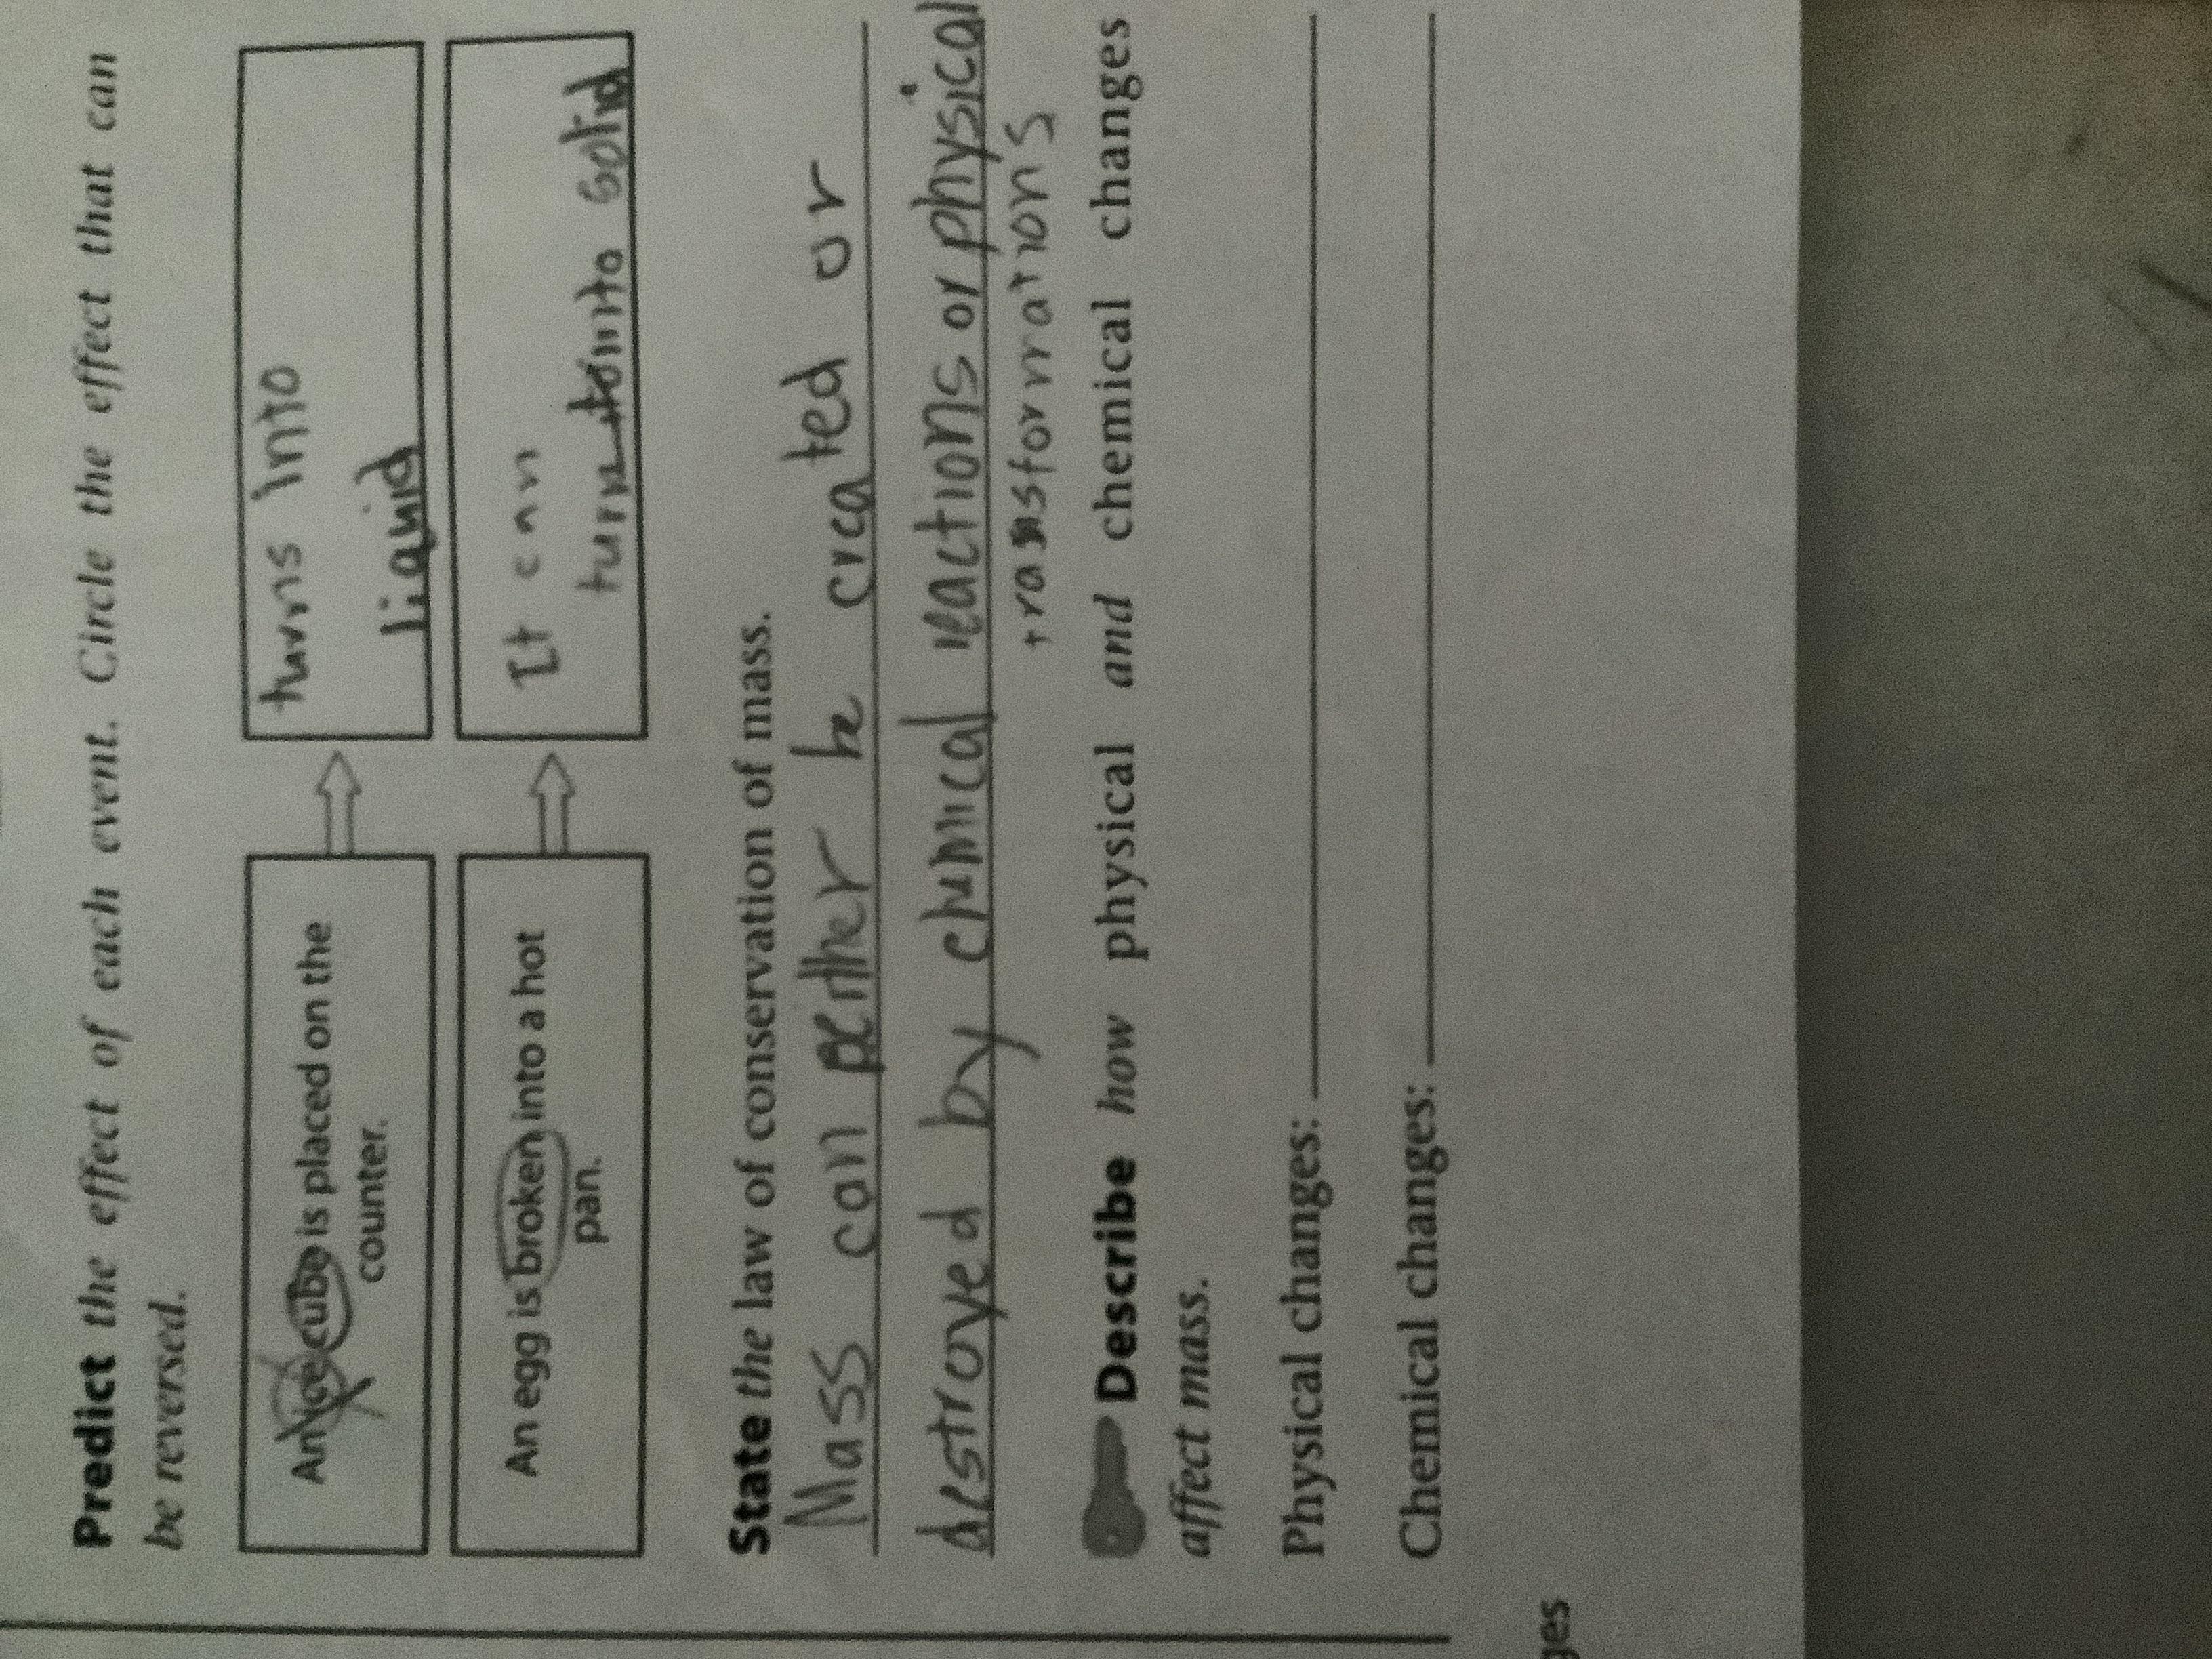 Predict the effect of each event. Circle the effect that can
be reversed.
An ice cube is placed on the
counter.
turns into
liquid
An egg is broken into a hot
pan.
It can
turn into solid
State the law of conservation of mass.
Mass can neither be created or
destroyed by chemical reactions or physical
transformations
Describe how physical and chemical changes
affect mass.
Physical changes:
Chemical changes:
ges